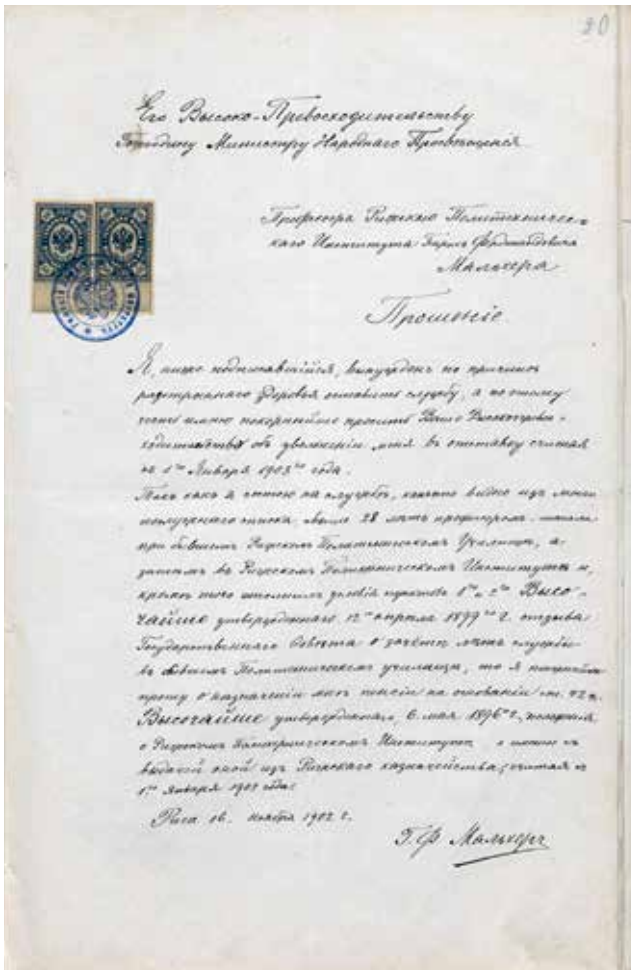 20
Его Высоко-Превосходительству
Господину Министру Народнаго Просвѣщенія
Профессора Рижскаго Политехничес-
каго Института
Мальхера
Прошеніе.
Я, ниже подписавшійся, вынужденъ по причинѣ
разстроеннаго здоровья оставить службу, а по этому
честь имѣю покорнѣйше просить Ваше Высокопрево-
сходительство объ увольненіи меня въ отставку считая
съ 1го Января 1903го года.
Такъ какъ я стою на службѣ, видно изъ моего
списка, 28 лѣтъ профессоромъ
при бывшемъ Рижскомъ Политехническомъ Училищѣ, а
затѣмъ въ Рижскомъ Политехническомъ Институтѣ и,
кромѣ того условія пунктовъ 1го и 2го Высо-
чайше утвержденнаго 12го апрѣля 1899го г. отзыва
Государственнаго Совѣта о зачетѣ лѣтъ службы
въ бывшемъ Политехническомъ училищѣ, то я покорнѣйше
прошу о назначеніи мнѣ пенсіи на основаніи ст. 42
Высочайше утвержденнаго, 6 мая 1896го г., положенія
о Рижскомъ Политехническомъ Институтѣ съ
выдачей оной изъ Рижскаго казначейства, считая съ
1го Января 1903 года.
Рига 16. ноября 1902 г.
Г. Ф. Мальхеръ